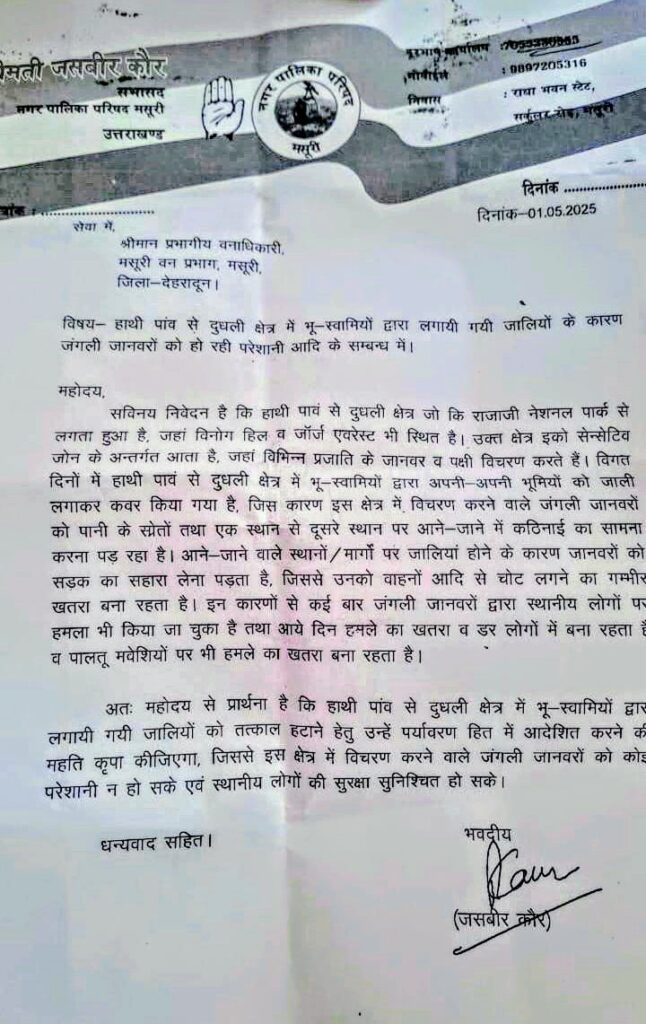 श्रीमती जसबीर कौर
सभासद
नगर पालिका परिषद मसूरी
उत्तराखण्ड
नगर पालिका परिषद
मसूरी
दूरभाष कार्यालय
मोबाईल : 9897205316
निवास : राधा भवन स्टेट,
सर्कुलर रोड, मसूरी
दिनांक ..................
दिनांक–01.05.2025
सेवा में,
श्रीमान प्रभागीय वनाधिकारी,
मसूरी वन प्रभाग, मसूरी,
जिला–देहरादून।
विषय– हाथी पांव से दुधली क्षेत्र में भू–स्वामियों द्वारा लगायी गयी जालियों के कारण
जंगली जानवरों को हो रही परेशानी आदि के सम्बन्ध में।
महोदय,
सविनय निवेदन है कि हाथी पावं से दुधली क्षेत्र जो कि राजाजी नेशनल पार्क से
लगता हुआ है, जहां विनोग हिल व जॉर्ज एवरेस्ट भी स्थित है। उक्त क्षेत्र इको सेन्सेटिव
जोन के अन्तर्गत आता है, जहां विभिन्न प्रजाति के जानवर व पक्षी विचरण करते हैं। विगत
दिनों में हाथी पावं से दुधली क्षेत्र में भू–स्वामियों द्वारा अपनी–अपनी भूमियों को जाली
लगाकर कवर किया गया है, जिस कारण इस क्षेत्र में विचरण करने वाले जंगली जानवरों
को पानी के स्रेतों तथा एक स्थान से दूसरे स्थान पर आने–जाने में कठिनाई का सामना
करना पड़ रहा है। आने–जाने वाले स्थानों/मार्गों पर जालियां होने के कारण जानवरों को
सड़क का सहारा लेना पड़ता है, जिससे उनको वाहनों आदि से चोट लगने का गम्भीर
खतरा बना रहता है। इन कारणों से कई बार जंगली जानवरों द्वारा स्थानीय लोगों पर
हमला भी किया जा चुका है तथा आये दिन हमले का खतरा व डर लोगों में बना रहता है
व पालतू मवेशियों पर भी हमले का खतरा बना रहता है।
अतः महोदय से प्रार्थना है कि हाथी पांव से दुधली क्षेत्र में भू–स्वामियों द्वारा
लगायी गयी जालियों को तत्काल हटाने हेतु उन्हें पर्यावरण हित में आदेशित करने की
महति कृपा कीजिएगा, जिससे इस क्षेत्र में विचरण करने वाले जंगली जानवरों को कोई
परेशानी न हो सके एवं स्थानीय लोगों की सुरक्षा सुनिश्चित हो सके।
धन्यवाद सहित।
भवदीय
Kaur
(जसबीर कौर)